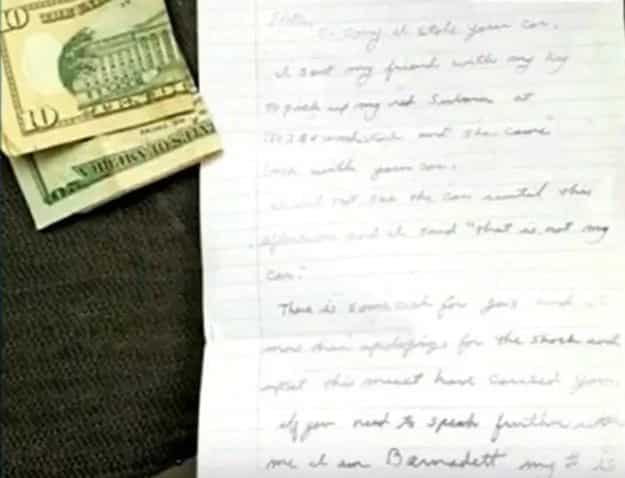 10
10
So sorry I stole your car.
I sent my friend with my key
to pick up my red Subaru at
woodstock and she came
back with your car.
I did not see the car until this
afternoon and I said "that is not my
car."
There is some cash for gas and I
more than apologize for the shock and
upset this must have caused you.
If you need to speak further with
me I am Bernadett my # is